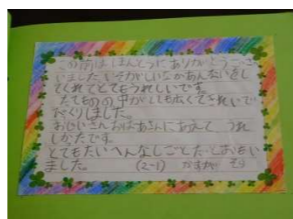 この前は ほんとうに ありがとうござ
いました。いそがしいなかあんないをし
てくれてとてもうれしいです。
たてものの中がとても広くてきれいで
びっくりしました。
おじいさんおばあさんにあえて、うれ
しかたです。
とてもたいへんなしごとだとおもい
ました。 (2-1)